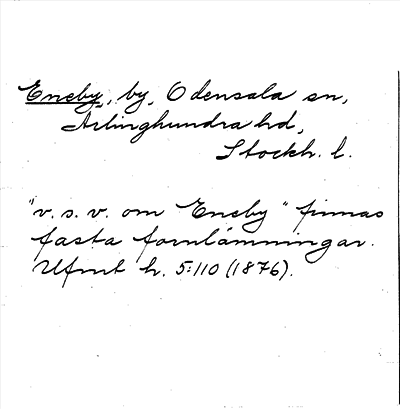 Eneby, by, Odensala sn,
Ärlinghundra hd,
Stockh. l.
"v. s. v. om Eneby" finnas
fasta fornlämningar.
Ufmt h. 5:110 (1876).